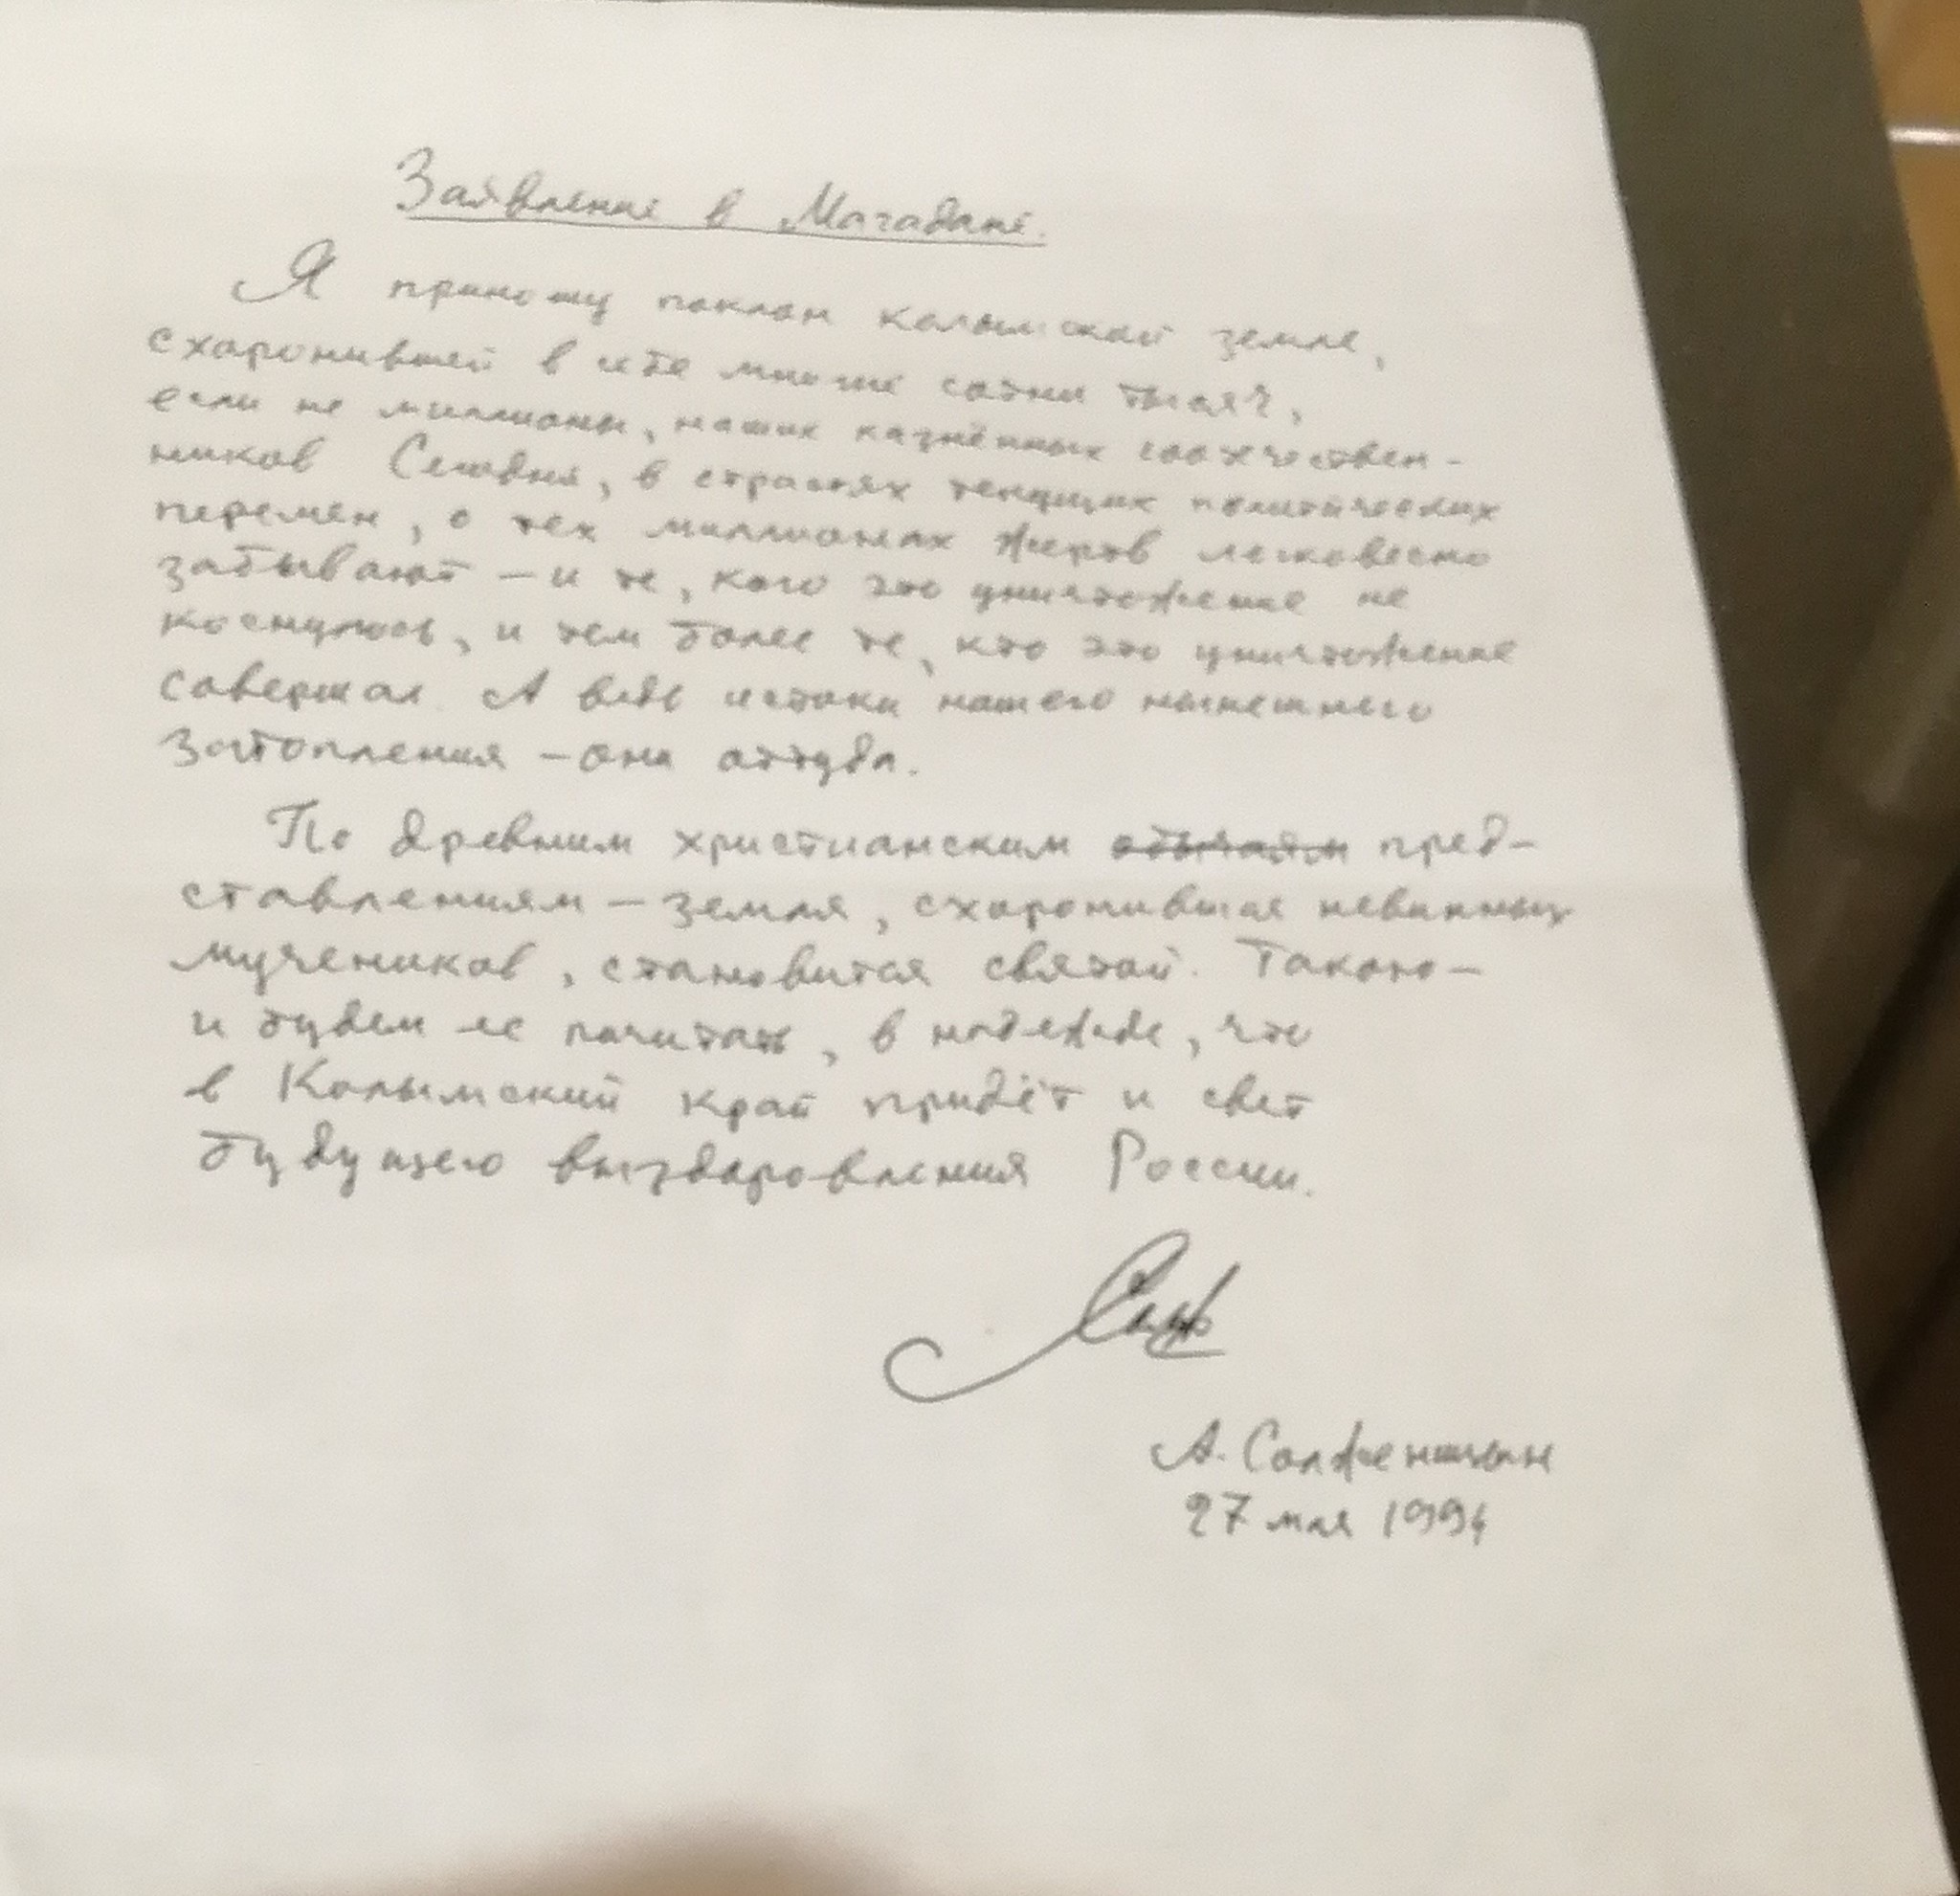 Заявление в Магадане.
Я приношу поклон колымской земле,
схоронившей в себе многие сотни тысяч,
если не миллионы, наших казнённых соотечествен-
ников Сегодня, в страстях текущих политических
перемен, о тех миллионах жертв легковесно
забывают – и те, кого это уничтожение не
коснулось, и тем более те, кто это уничтожение
совершал. А ведь истоки нашего нынешнего
– они оттуда.
По древним христианским обычаям пред-
ставлениям – земля, схоронившая невинных
мучеников, становится святой. Такою –
и будем ее почитать, в надежде, что
в Колымский край придёт и свет
будущего выздоровления России.
А. Солженицын
27 мая 1994